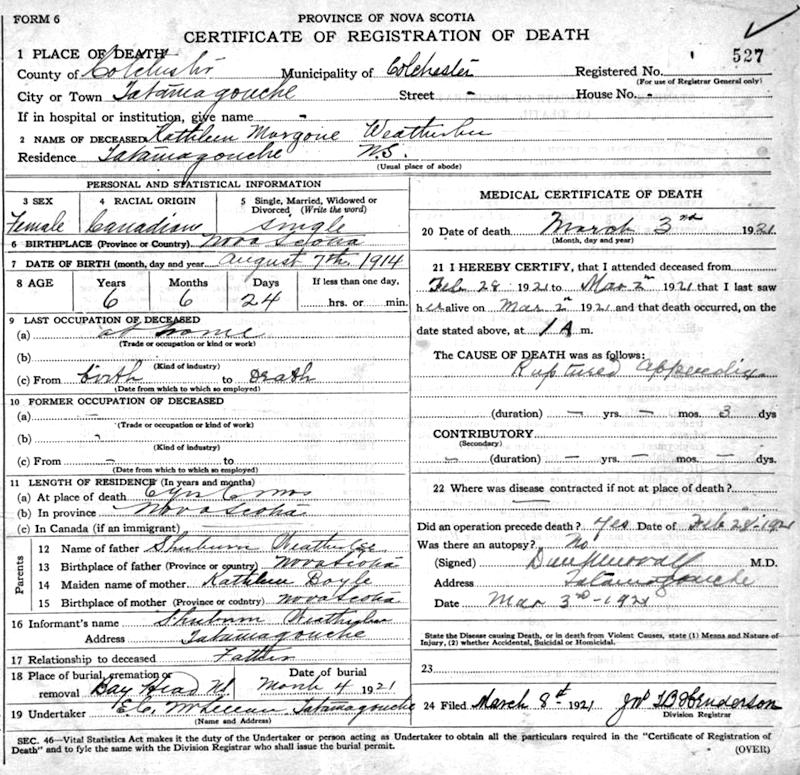 FORM 6
PROVINCE OF NOVA SCOTIA
CERTIFICATE OF REGISTRATION OF DEATH
1 PLACE OF DEATH
County of Colchester Municipality of Colchester Registered No. 527
(For use of Registrar General only)
City or Town Tatamagouche Street - House No. -
If in hospital or institution, give name -
2 NAME OF DECEASED Kathleen Weatherbee
Residence Tatamagouche N.S.
(Usual place of abode)
PERSONAL AND STATISTICAL INFORMATION
3 SEX 4 RACIAL ORIGIN 5 Single, Married, Widowed or Divorced (Write the word)
Female Canadian Single
6 BIRTHPLACE (Province or Country) Nova Scotia
7 DATE OF BIRTH (month, day and year) August 7th 1914
8 AGE Years Months Days If less than one day,
6 6 24 hrs. or min.
9 LAST OCCUPATION OF DECEASED
(a) at home
(Trade or occupation or kind or work)
(b)
(Kind of industry)
(c) From birth to Death
(Date from which to which so employed)
10 FORMER OCCUPATION OF DECEASED
(a) -
(Trade or occupation or kind of work)
(b) -
(Kind of industry)
(c) From - to
(Date from which to which so employed)
11 LENGTH OF RESIDENCE (In years and months)
(a) At place of death 6 yrs 6 mos
(b) In province Nova Scotia
(c) In Canada (if an immigrant)
Parents
12 Name of father Shuburn Weatherbee
13 Birthplace of father (Province or country) Nova Scotia
14 Maiden name of mother Kathleen Boyle
15 Birthplace of mother (Province or country) Nova Scotia
16 Informant's name Shuburn Weatherbee
Address Tatamagouche
17 Relationship to deceased Father
18 Place of burial, cremation or removal Bay Head NS Date of burial March 4 1921
19 Undertaker E.C. Tatamagouche
(Name and Address)
MEDICAL CERTIFICATE OF DEATH
20 Date of death March 3rd 1921
(Month, day and year)
21 I HEREBY CERTIFY, that I attended deceased from
Feb 28 1921 to Mar 2n 1921 that I last saw
her alive on Mar 2n 1921 and that death occurred, on
date stated above, at 1 A m.
The CAUSE OF DEATH was as follows:
Ruptured Appendix
(duration) - yrs. - mos. 3 dys
CONTRIBUTORY
(Secondary)
- (duration) - yrs. - mos. - dys
22 Where was disease contracted if not at place of death?
Did an operation precede death? Yes Date of Feb 28 1921
Was there an autopsy? No
(Signed) M.D.
Address Tatamagouche
Date Mar 3rd - 1921
State the Disease causing Death, or in death from Violent Causes, state (1) Means and Nature of
Injury, (2) whether Accidental, Suicidal or Homicidal.
23
24 Filed March 8th 1921 Henderson
Division Registrar
SEC. 46—Vital Statistics Act makes it the duty of the Undertaker or person acting as Undertaker to obtain all the particulars required in the "Certificate of Registration of
Death" and to fyle the same with the Division Registrar who shall issue the burial permit.
(OVER)